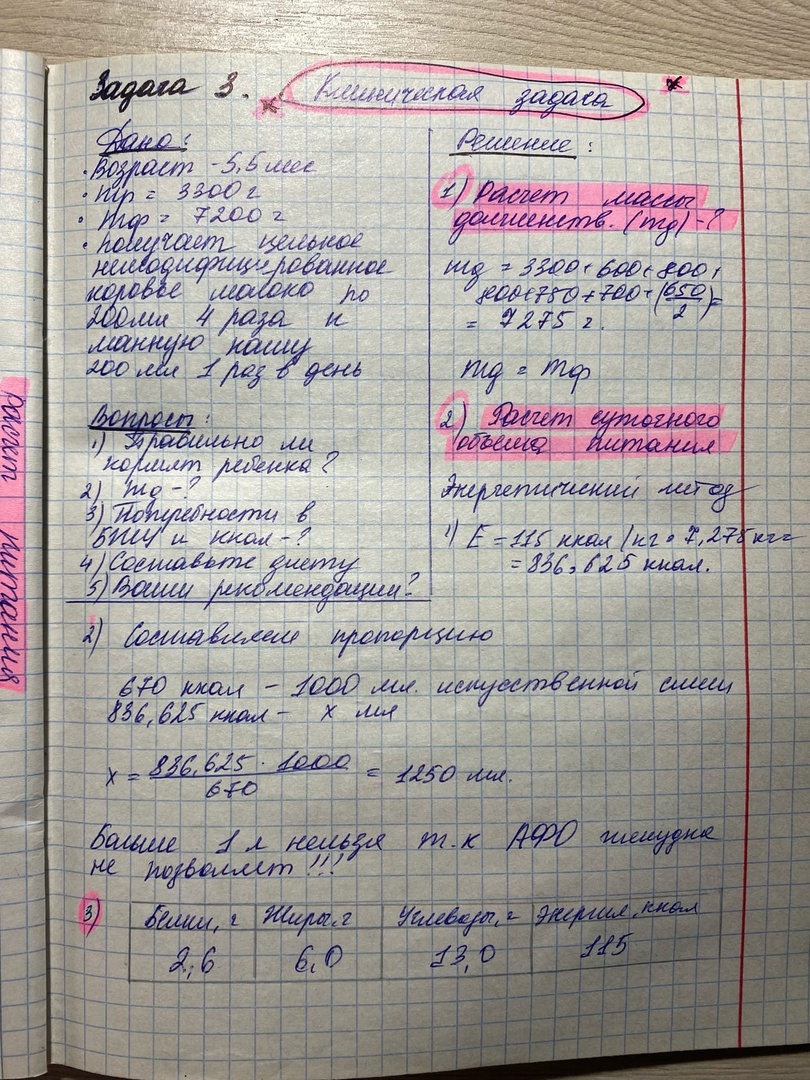 Задача 3.
Клиническая задача
Дано:
• Возраст - 5,5 мес
• mр = 3300 г
• mф = 7200 г
• получает цельное
немодифицированное
коровье молоко по
200мл 4 раза и
манную кашу
200 мл 1 раз в день
Вопросы:
1) Правильно ли
кормят ребенка?
2) mд -?
3) Потребности в
БЖУ и ккал -?
4) Составьте диету
5) Ваши рекомендации?
Решение:
1) Расчет массы
долженств. (mд) - ?
mд = 3300 + 600 + 800 +
800 + 750 + 700 + (650/2) =
= 7275 г.
mд = mф
2) Расчет суточного
объема питания
Энергетический метод
1) E = 115 ккал/кг • 7,275 кг =
= 836,625 ккал.
2) Составляем пропорцию
670 ккал - 1000 мл. искуственной смеси
836,625 ккал - x мл
x = 836,625 · 1000 / 670 = 1250 мл.
Больше 1 л нельзя т.к АФО желудка
не позволяет!!!
3)
Белки, г Жиры, г Углеводы, г Энергия, ккал
2,6 6,0 13,0 115
Расчет питания